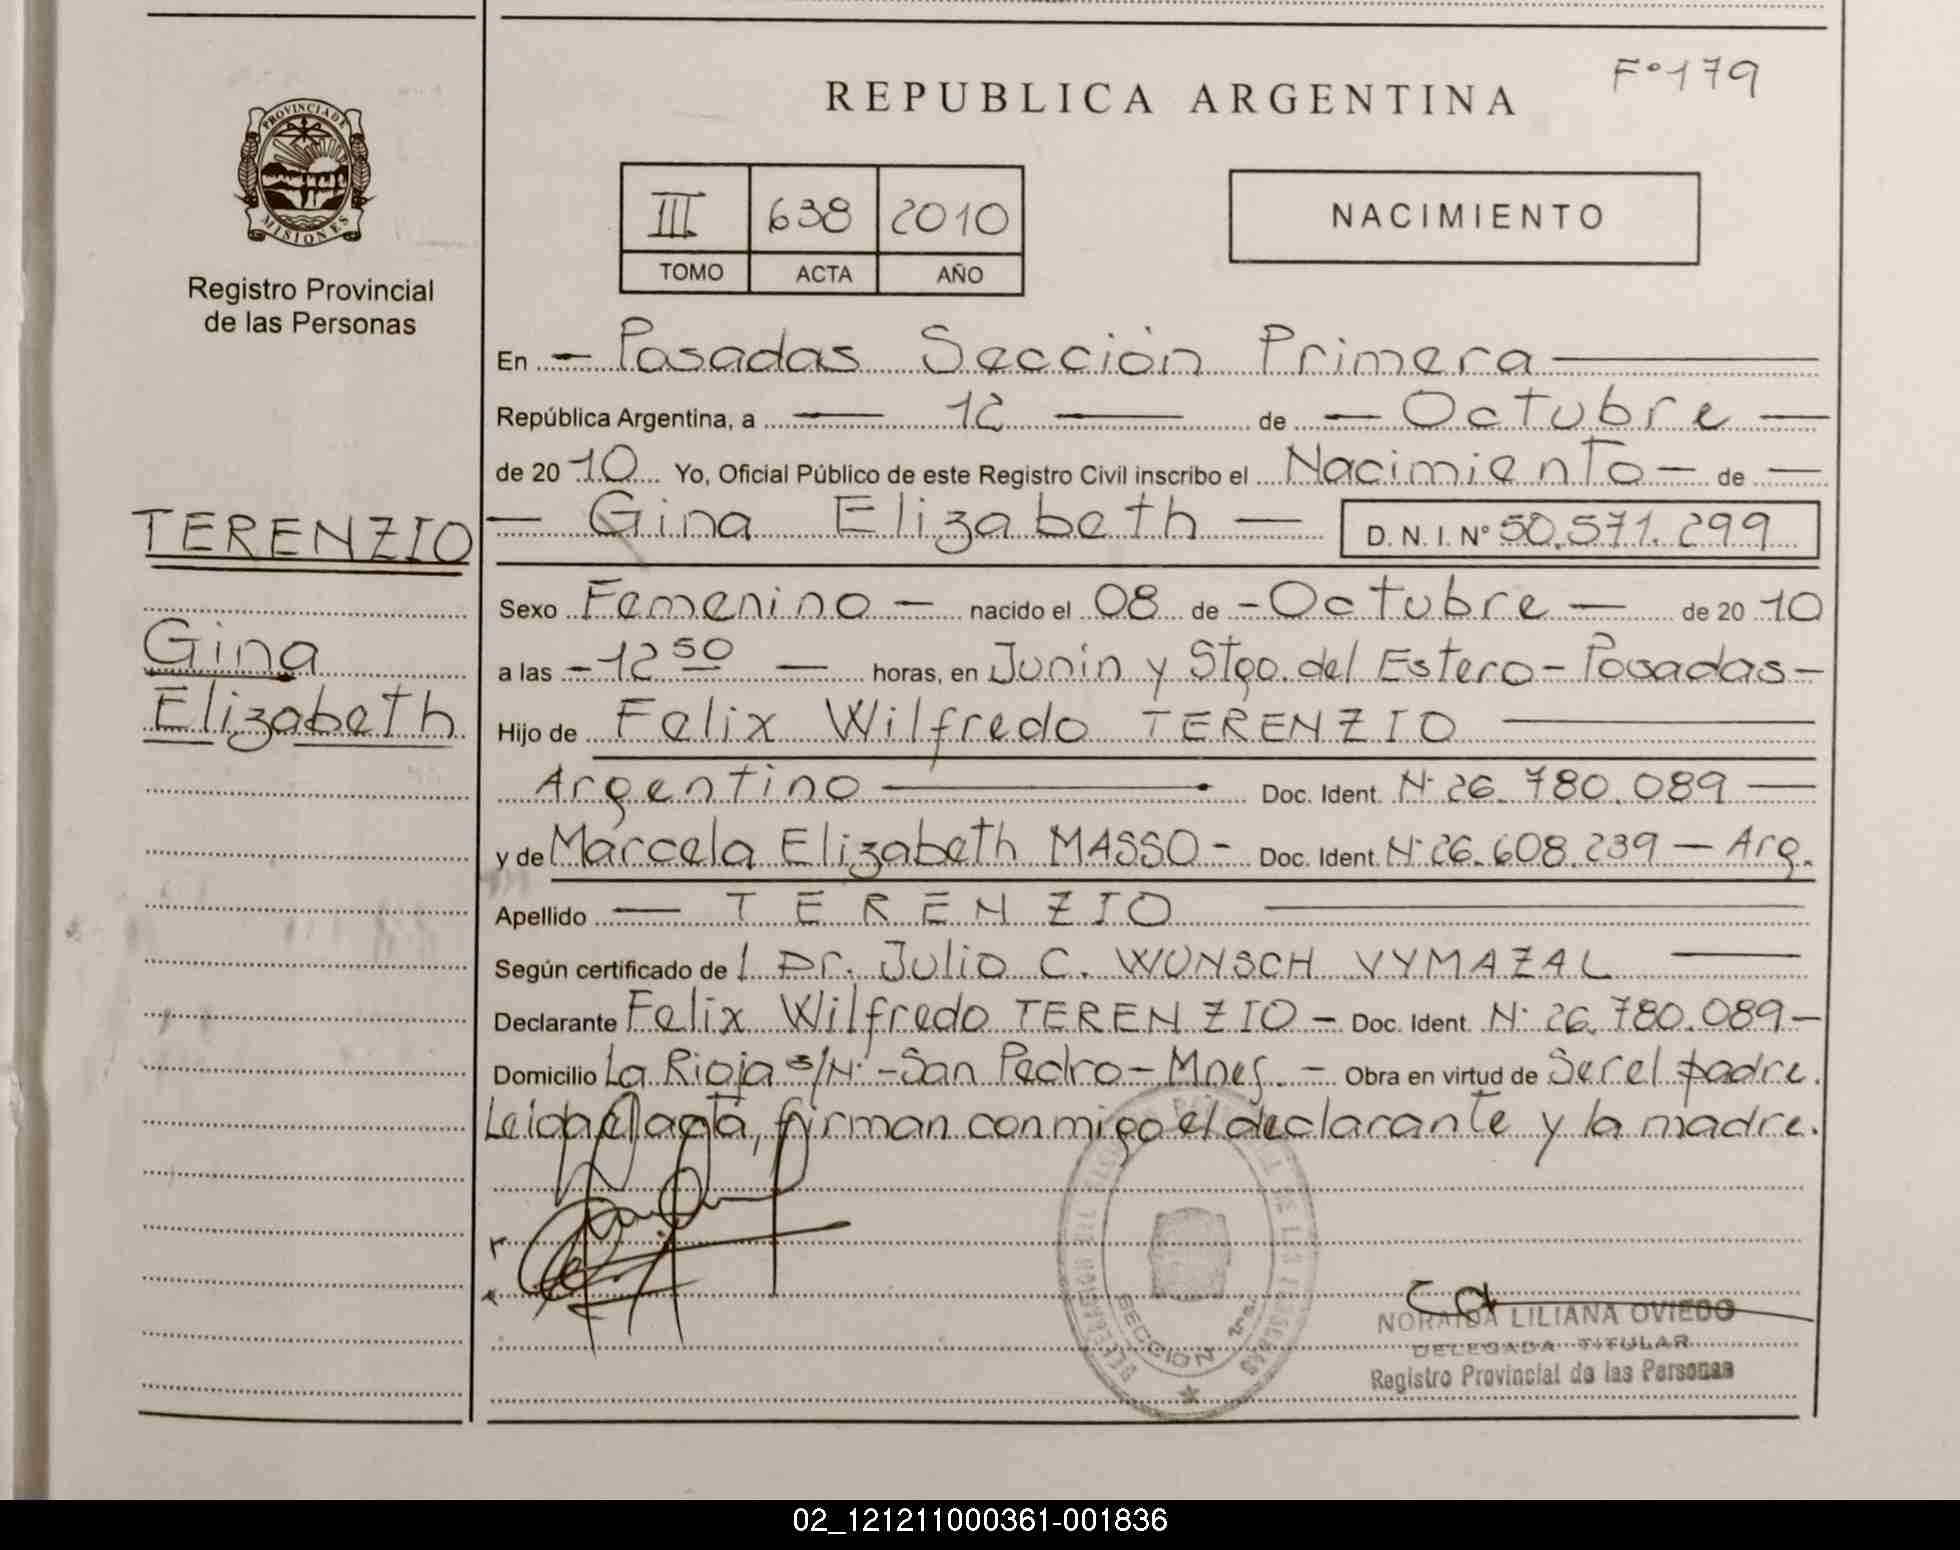 F° 179
REPUBLICA ARGENTINA
PROVINCIA DE
MISIONES
Registro Provincial
de las Personas
III 638 2010
TOMO ACTA AÑO
NACIMIENTO
En - Posadas Sección Primera
República Argentina, a 12 de - Octubre
de 2010 Yo, Oficial Público de este Registro Civil inscribo el Nacimiento - de
TERENZIO
- Gina Elizabeth - D.N.I. N° 50.571.299
Sexo Femenino - nacido el 08 de - Octubre - de 2010
Gina
Elizabeth
a las - 12 50 - horas, en Junin y Stgo. del Estero - Posadas -
Hijo de Felix Wilfredo TERENZIO
Argentino Doc. Ident. N· 26.780.089
y de Marcela Elizabeth MASSO - Doc. Ident. N· 26.608.239 - Arg.
Apellido - TERENZIO
Según certificado de Dr. Julio C. WUNSCH VYMAZAL
Declarante Felix Wilfredo TERENZIO - Doc. Ident. N· 26.780.089 -
Domicilio La Rioja s/N· - San Pedro - Mnes. - Obra en virtud de Ser el padre.
Leida el acta, firman conmigo el declarante y la madre.
SECCION 1ra.
NORAIDA LILIANA OVIEDO
DELEGADA TITULAR
Registro Provincial de las Personas
02_121211000361-001836